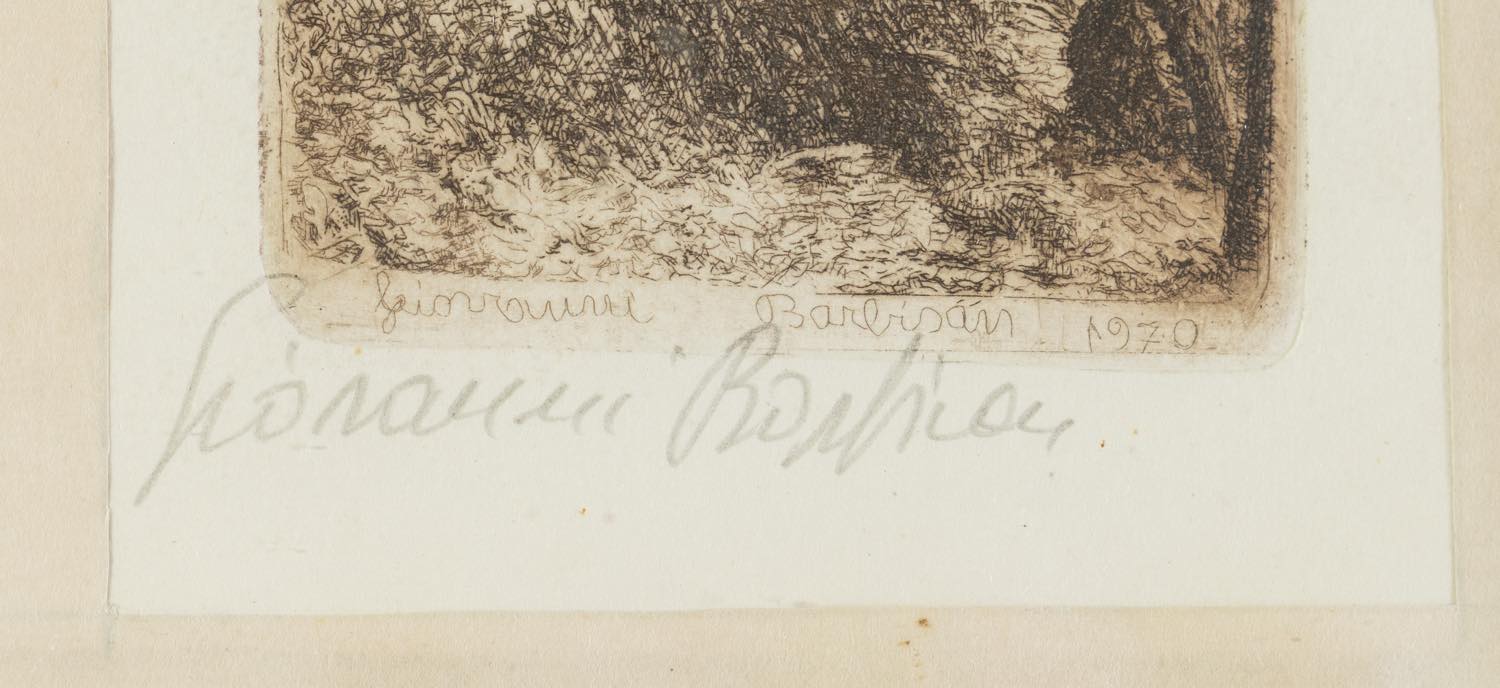 Giovanni Barbisán 1970
Giovanni Barbisan